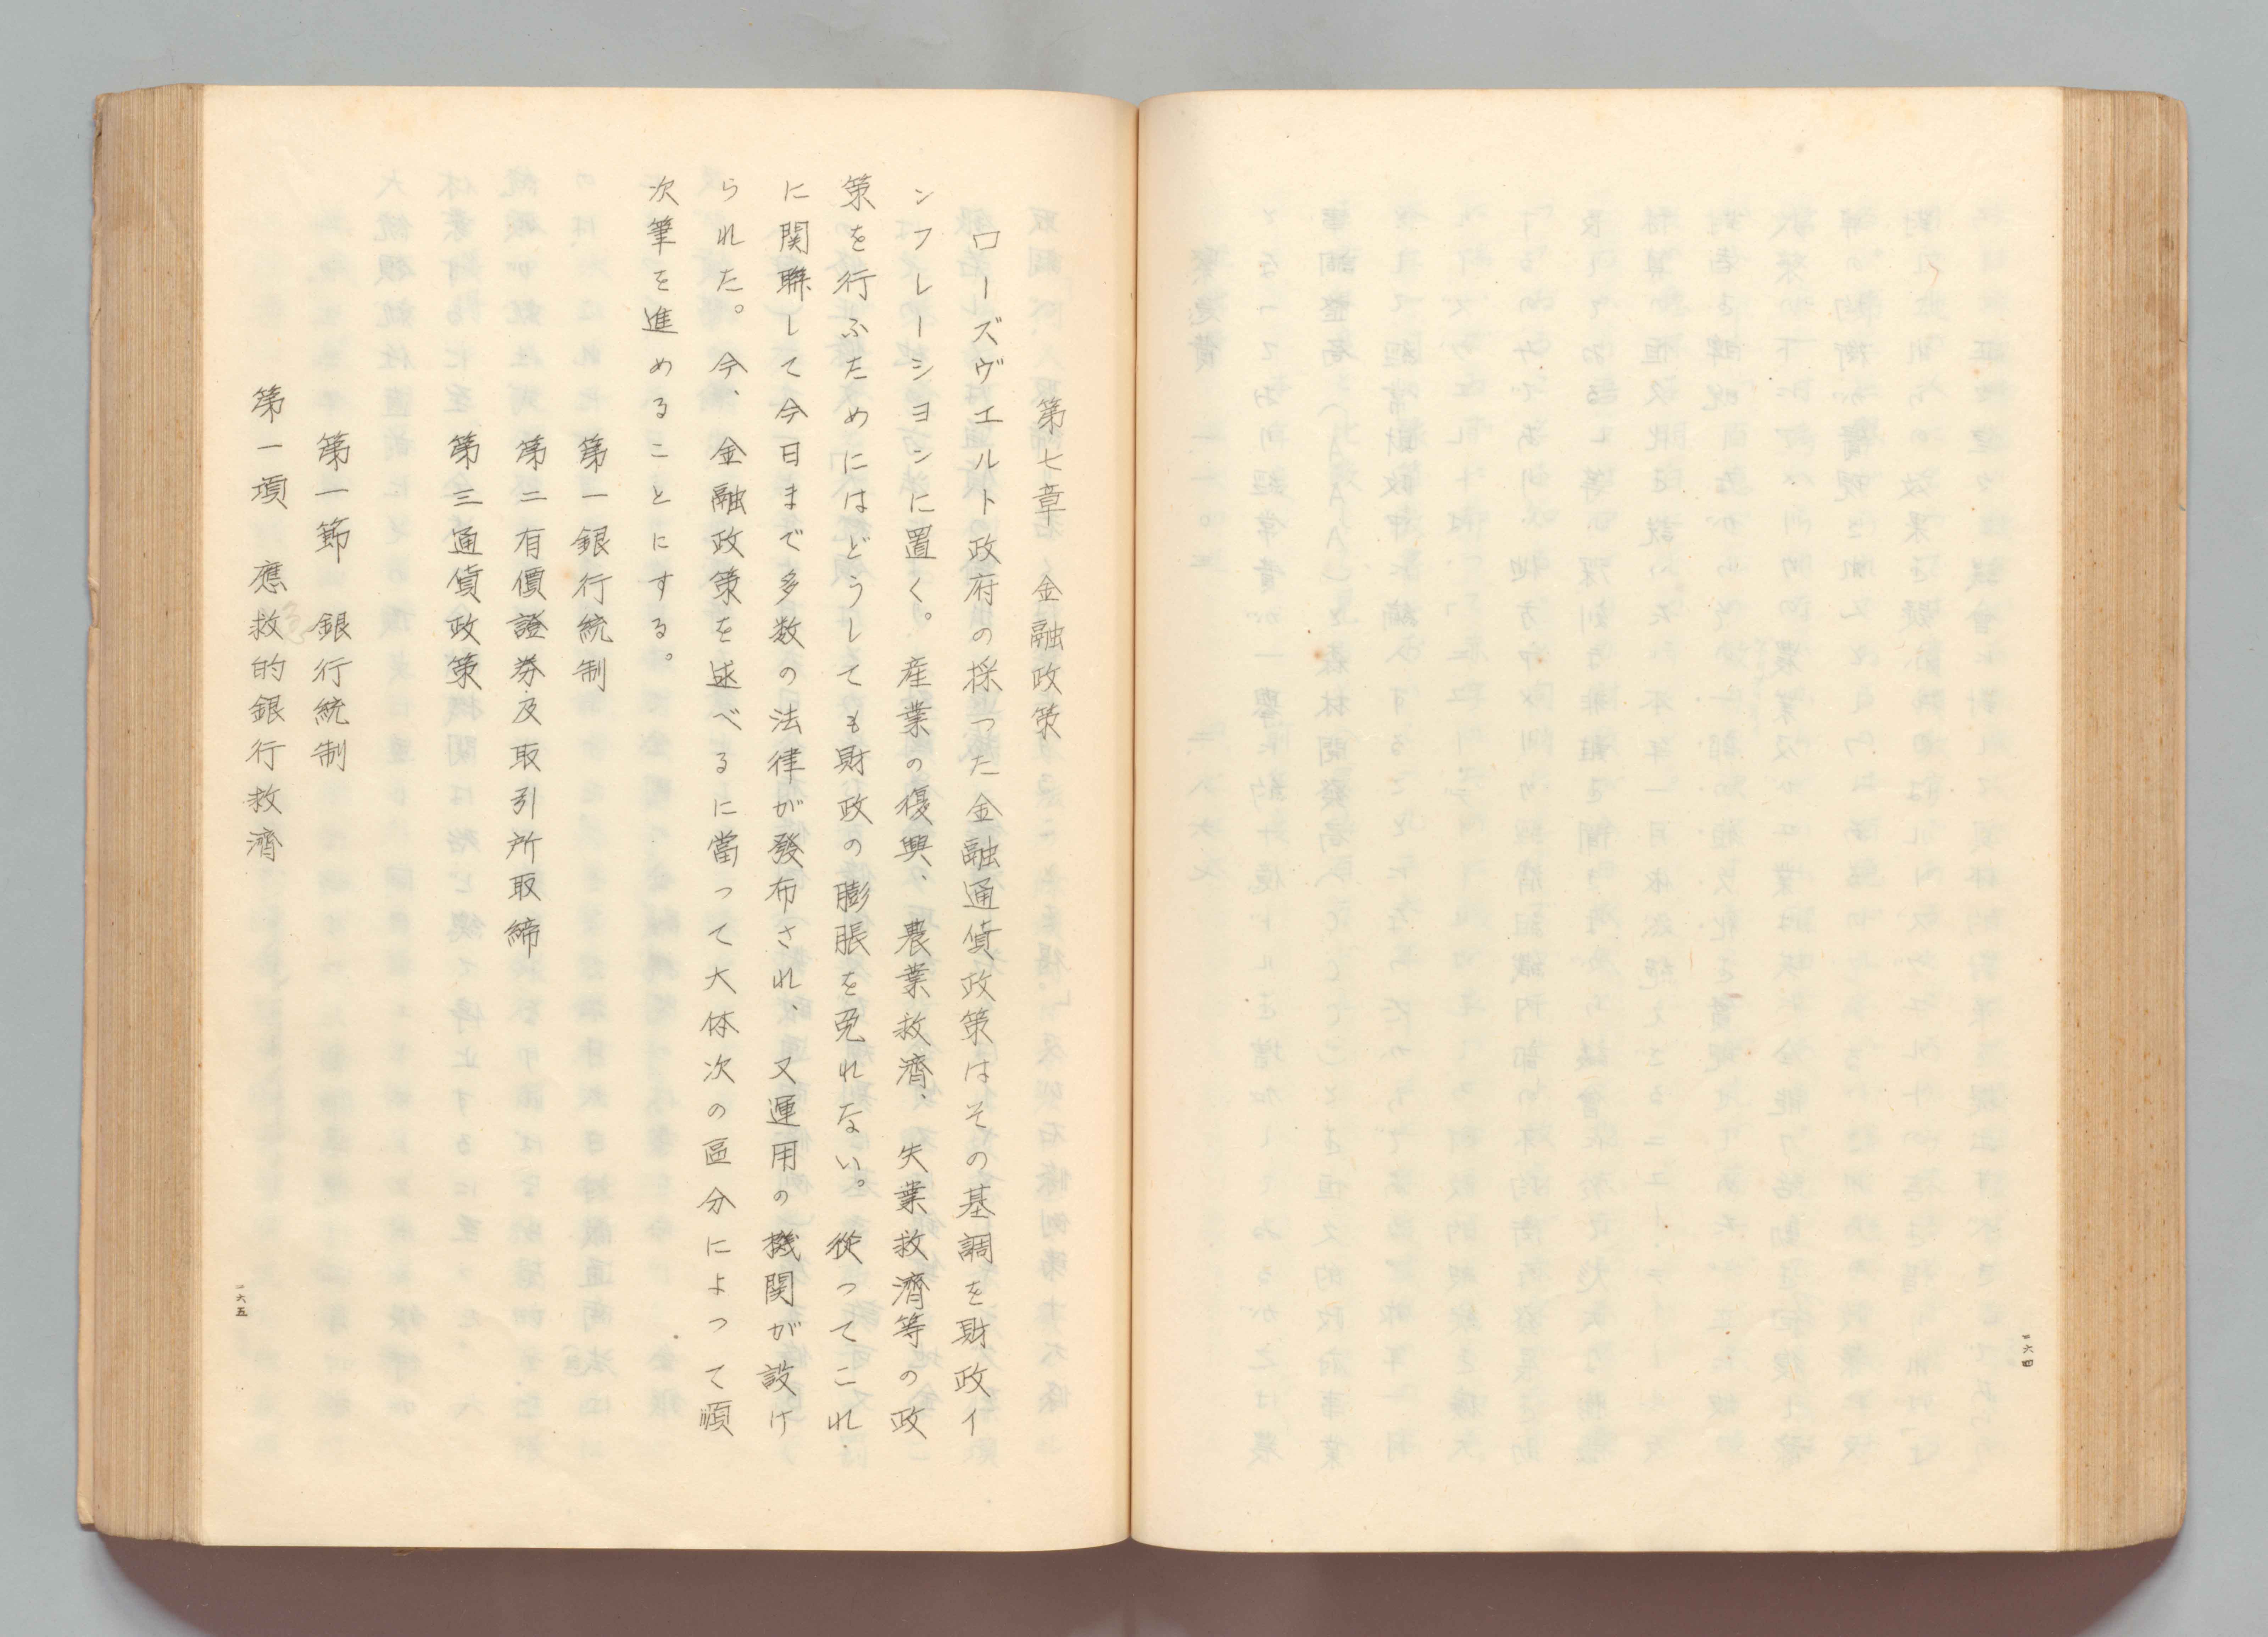 一六四
第七章　金融政策
ローズヴエルト政府の採つた金融通貨政策はその基調を財政イ
ンフレーシヨンに置く。産業の復興、農業救濟、失業救濟等の政
策を行ふためにはどうしても財政の膨脹を免れない。從つてこれ
に関聯して今日まで多数の法律が發布され、又運用の機関が設け
られた。今、金融政策を述べるに當つて大体次の區分によつて順
次筆を進めることにする。
第一銀行統制
第二有價證券及取引所取締
第三通貨政策
第一節　銀行統制
第一項　應救的銀行救濟
一六五